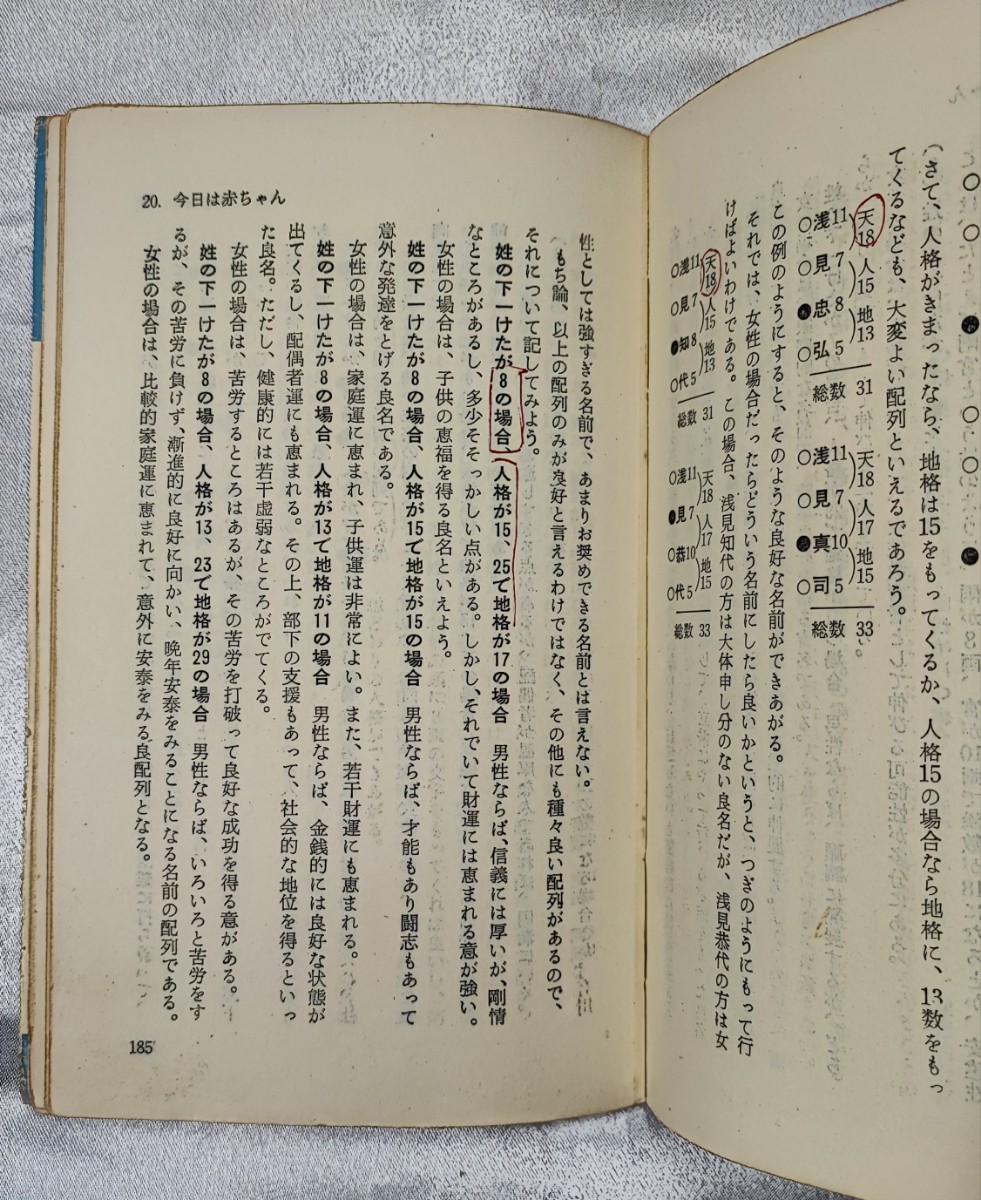 (さて、人格がきまったなら、地格は15をもってくるか、人格15の場合なら地格に、13数をもっ
てくるなども、大変よい配列といえるであろう。
天18 人15 地13
○浅11 ○見7 ●忠8 ○弘5 総数 31
天18 人17 地15
○浅11 ○見7 ●真10 ○司5 総数 33
この例のようにすると、そのような良好な名前ができあがる。
それでは、女性の場合だったらどういう名前にしたら良いかというと、つぎのようにもって行
けばよいわけである。この場合、浅見知代の方は大体申し分のない良名だが、浅見恭代の方は女
天18 人15 地13
○浅11 ○見7 ●知8 ○代5 総数 31
天18 人17 地15
○浅11 ●見7 ○恭10 ○代5 総数 33
20. 今日は赤ちゃん
性としては強すぎる名前で、あまりお奨めできる名前とは言えない。
もち論、以上の配列のみが良好と言えるわけではなく、その他にも種々良い配列があるので、
それについて記してみよう。
姓の下一けたが8の場合、人格が15、25で地格が17の場合 男性ならば、信義には厚いが、剛情
なところがあるし、多少そそっかしい点がある。しかし、それでいて財運には恵まれる意が強い。
女性の場合は、子供の恵福を得る良名といえよう。
姓の下一けたが8の場合、人格が15で地格が15の場合 男性ならば、才能もあり闘志もあって
意外な発達をとげる良名である。
女性の場合は、家庭運に恵まれ、子供運は非常によい。また、若干財運にも恵まれる。
姓の下一けたが8の場合、人格が13で地格が11の場合 男性ならば、金銭的には良好な状態が
出てくるし、配偶者運にも恵まれる。その上、部下の支援もあって、社会的な地位を得るといっ
た良名。ただし、健康的には若干虚弱なところがでてくる。
女性の場合は、苦労するところはあるが、その苦労を打破って良好な成功を得る意がある。
姓の下一けたが8の場合、人格が13、23で地格が29の場合 男性ならば、いろいろと苦労をす
るが、その苦労に負けず、漸進的に良好に向かい、晩年安泰をみることになる名前の配列である。
女性の場合は、比較的家庭運に恵まれて、意外に安泰をみる良配列となる。
185